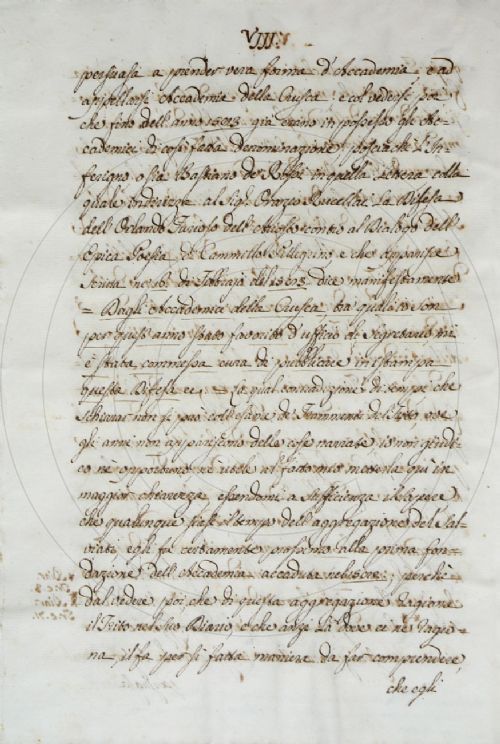 VIII.
persuasa a prender vera forma d'Accademia, e ad
apistellarsi Accademia della Crusca: e col vedersi poi
che fino dell'anno 1583 già erano in possesso gli Ac=
cademici di così fatta denominazione; posciachè l'In=
ferigno o sia Bastiano de Rossi in quella lettera colla
quale indirizza al Sig. Orazio Rucellai la Difesa
dell'Orlando Furioso dell'Ariosto contro al Dialogo dell'
Epica Poesia di Cammillo Pellegrino e che apparisce
scritta ne 16. di Febbrajo dice manifestamente
= Dagli Accademici della Crusca tra' quali io son
per quest'anno stato favorito d'ufficio di Segretario mi
è stata commessa cura di pubblicare in istampa
questa Difesa ec. = La qual contradizione di tempi che
schivar non si può coll'osservare de' frammenti del Trito, ove
gli anni non appariscono delle cose narrate io non giudi=
co nè opportuno nè utile al fatto mio metterla qui in
maggior chiarezza essendomi a sufficienza il sapere
che qualunque fosse il tempo dell'aggregazione del Sal=
viati egli fu certamente posteriore alla prima fon=
dazione dell'Accademia accaduta nel 1582; perchè
dal vedere poi che di questa aggregazione ragiona
il Trito nel suo Diario, e che anzi là dove ei ne ragio=
na il fa per sì fatta maniera da far comprendere,
che egli